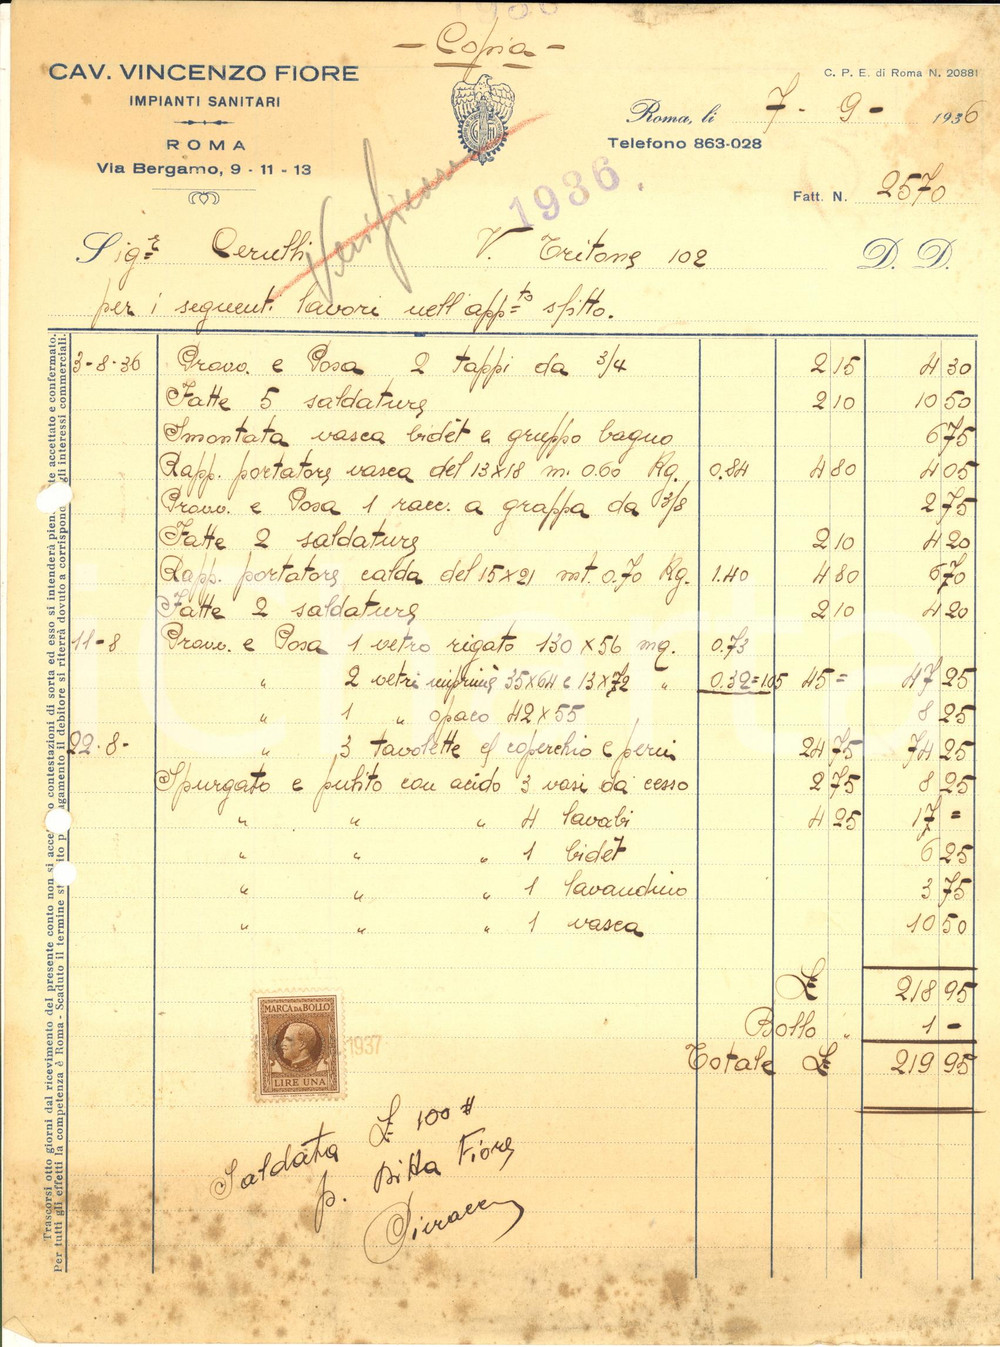 - Copia -
CAV. VINCENZO FIORE
IMPIANTI SANITARI
ROMA
Via Bergamo, 9 - 11 - 13
C. P. E. di Roma N. 20881
Roma, li 7 - 9 - 1936
Telefono 863-028
1936.
Fatt. N. 2570
Sig.r Cerutti V. Tritone 102 D. D.
per i seguenti lavori nell'app.to sfitto.
3-8-36 Provv. e Posa 2 tappi da 3/4 2 15 4 30
Fatte 5 saldature 2 10 10 50
Smontata vasca bidèt e gruppo bagno 6 75
Rapp. portatore vasca del 13x18 m. 0.60 Kg. 0.84 4 80 4 05
Provv. e Posa 1 racc. a grappa da 3/8 2 75
Fatte 2 saldature 2 10 4 20
Rapp. portatore calda del 15x21 mt. 0.70 Kg. 1.40 4 80 6 70
Fatte 2 saldature 2 10 4 20
11-8 Provv. e Posa 1 vetro rigato 130x56 mq. 0.73
" 2 vetri 35x64 e 13x72 " 0.32=105 45= 47 25
" 1 " opaco 42x55 8 25
22-8- " 3 tavolette c/ coperchio e perni 24 75 74 25
Spurgato e pulito con acido 3 vasi da cesso 2 75 8 25
" " " 4 lavabi 4 25 17 =
" " " 1 bidet 6 25
" " " 1 lavandino 3 75
" " " 1 vasca 10 50
£ 218 95
Bollo " 1 -
Totale £ 219 95
MARCA DA BOLLO
LIRE UNA
1937
Saldata £ 100 #
p. Ditta Fiore
Trascorsi otto giorni dal ricevimento del presente conto non si acce o contestazioni di sorta ed esso si intenderà pien te accettato e confermato.
Per tutti gli effetti la competenza è Roma - Scaduto il termine st ito p agamento il debitore si riterrà dovuto a corrispond gli interessi commerciali.